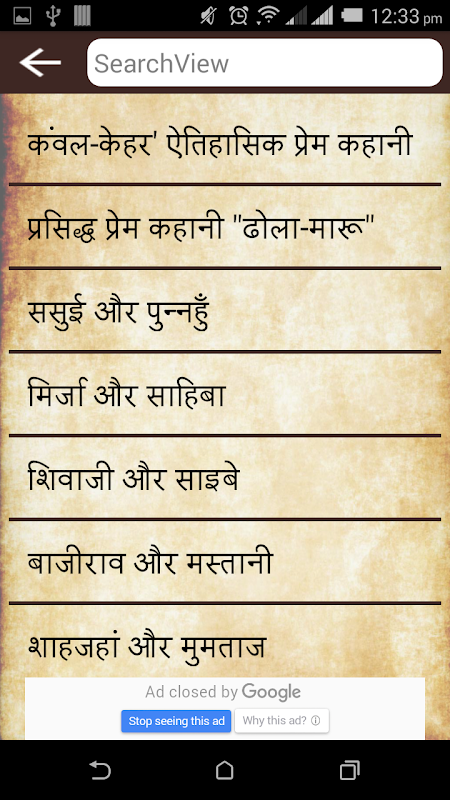 12:33 pm
SearchView
कंवल-केहर' ऐतिहासिक प्रेम कहानी
प्रसिद्ध प्रेम कहानी "ढोला-मारू"
ससुई और पुन्नहुँ
मिर्जा और साहिबा
शिवाजी और साइबे
बाजीराव और मस्तानी
शाहजहां और मुमताज
Ad closed by Google
Stop seeing this ad Why this ad?